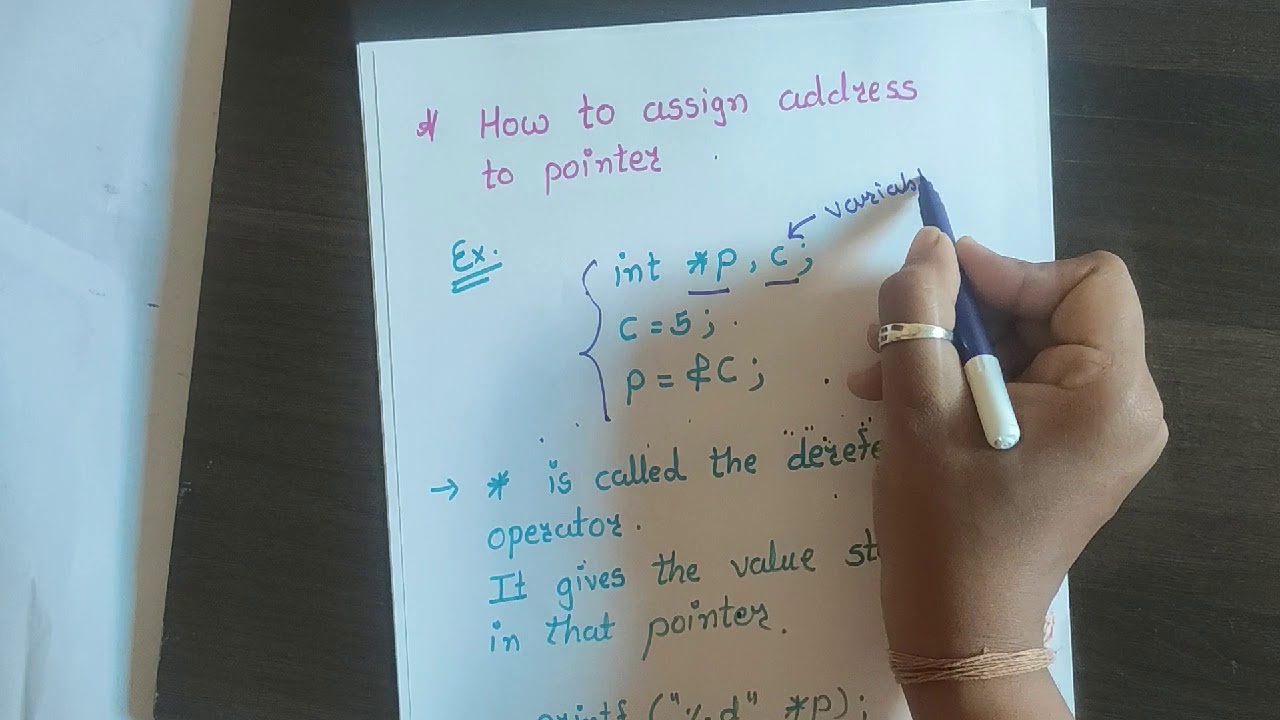 * How to assign address
to pointer
variabl
Ex.
int *p, c;
c = 5;
p = &c;
→ * is called the derefe
operator.
It gives the value st
in that pointer.
printf ("%d" *p);